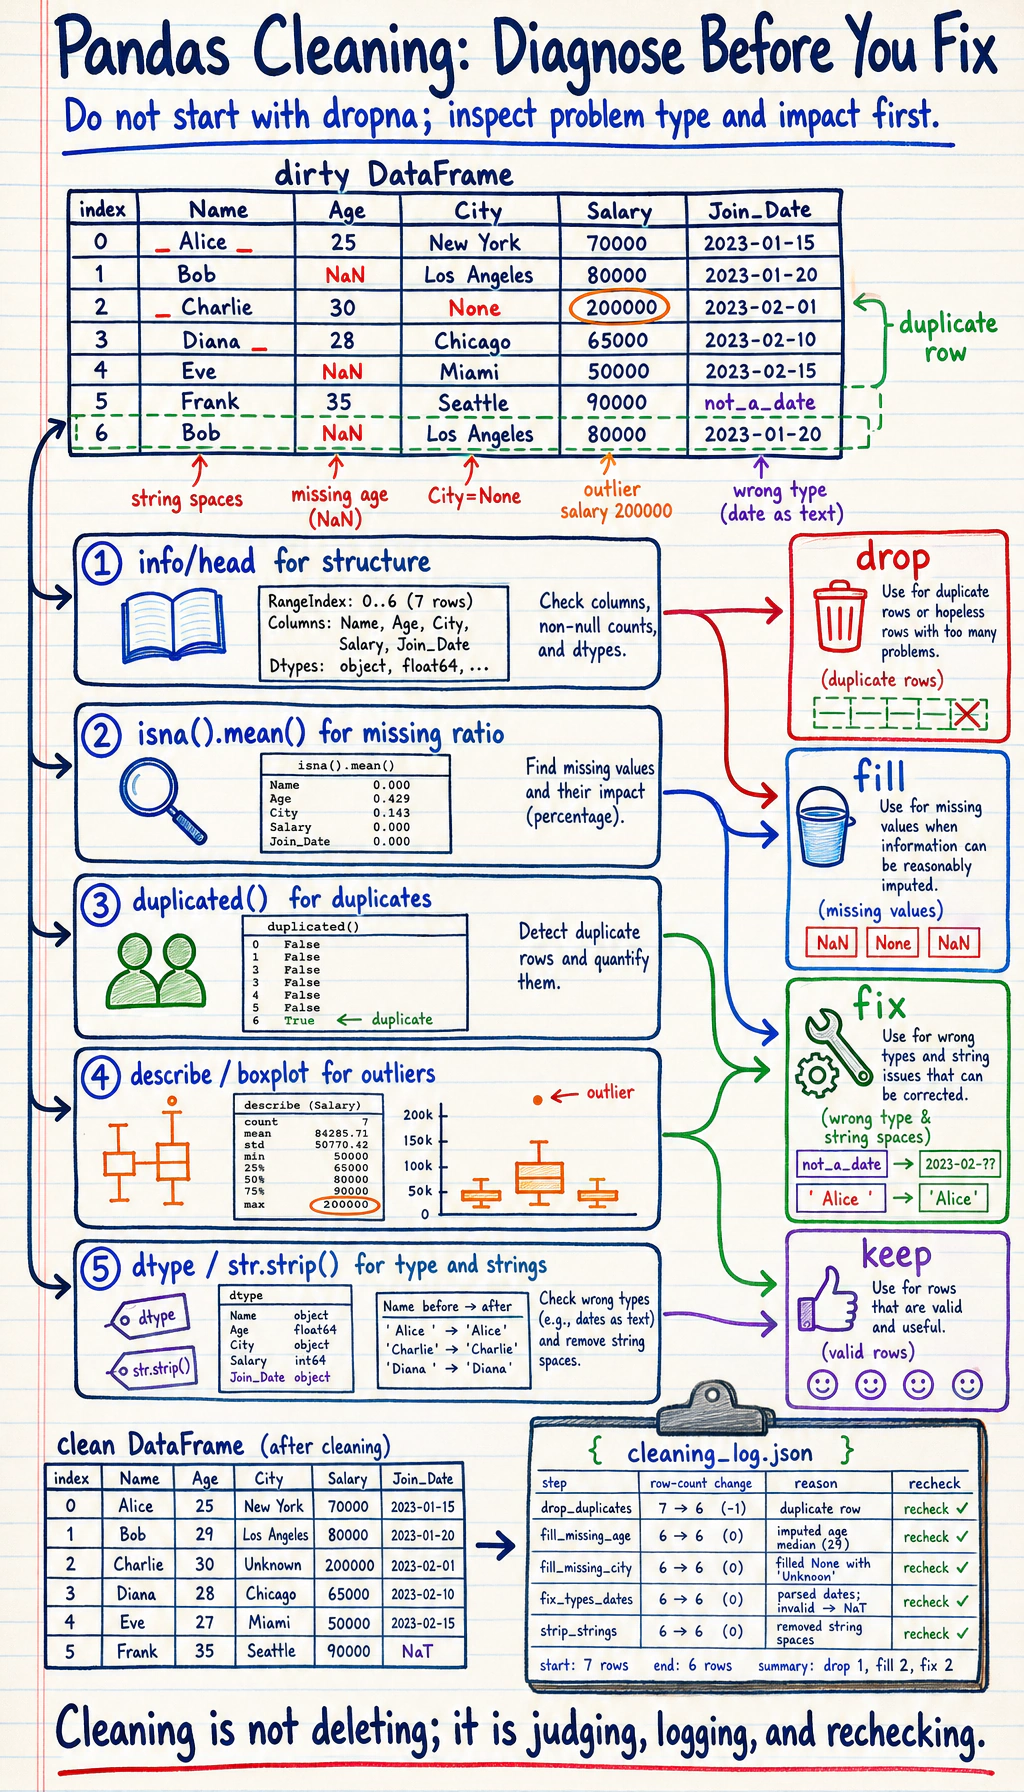 Pandas Cleaning: Diagnose Before You Fix
Do not start with dropna; inspect problem type and impact first.
dirty DataFrame
index Name Age City Salary Join_Date
0 _ Alice _ 25 New York 70000 2023-01-15
1 Bob NaN Los Angeles 80000 2023-01-20
2 _ Charlie 30 None 200000 2023-02-01
3 Diana _ 28 Chicago 65000 2023-02-10
4 Eve NaN Miami 50000 2023-02-15
5 Frank 35 Seattle 90000 not_a_date
6 Bob NaN Los Angeles 80000 2023-01-20
duplicate
row
string spaces
missing age
(NaN)
City=None
outlier
salary 200000
wrong type
(date as text)
1 info/head for structure
RangeIndex: 0..6 (7 rows)
Columns: Name, Age, City,
Salary, Join_Date
Dtypes: object, float64, ...
Check columns,
non-null counts,
and dtypes.
2 isna().mean() for missing ratio
isna().mean()
Name 0.000
Age 0.429
City 0.143
Salary 0.000
Join_Date 0.000
Find missing values
and their impact
(percentage).
3 duplicated() for duplicates
duplicated()
0 False
1 False
3 False
3 False
4 False
5 False
6 True ← duplicate
Detect duplicate
rows and quantify
them.
4 describe / boxplot for outliers
describe (Salary)
count 7
mean 84285.71
std 50770.42
min 50000
25% 65000
50% 80000
75% 90000
max 200000
200k
150k
100k
50k
0
outlier
5 dtype / str.strip() for type and strings
dtype
str.strip()
dtype
Name object
Age float64
City object
Salary int64
Join_Date object
Name before → after
' Alice ' → 'Alice'
'Charlie' → 'Charlie'
'Diana ' → 'Diana'
Check wrong types
(e.g., dates as text)
and remove string
spaces.
drop
Use for duplicate
rows or hopeless
rows with too many
problems.
(duplicate rows)
fill
Use for missing
values when
information can
be reasonably
imputed.
(missing values)
NaN None NaN
fix
Use for wrong
types and string
issues that can
be corrected.
(wrong type &
string spaces)
not_a_date → 2023-02-??
' Alice ' → 'Alice'
keep
Use for rows
that are valid
and useful.
(valid rows)
clean DataFrame (after cleaning)
index Name Age City Salary Join_Date
0 Alice 25 New York 70000 2023-01-15
1 Bob 29 Los Angeles 80000 2023-01-20
2 Charlie 30 Unknown 200000 2023-02-01
3 Diana 28 Chicago 65000 2023-02-10
4 Eve 27 Miami 50000 2023-02-15
5 Frank 35 Seattle 90000 NaT
{ cleaning_log.json }
step row-count change reason recheck
drop_duplicates 7 → 6 (-1) duplicate row recheck ✓
fill_missing_age 6 → 6 (0) imputed age
median (29) recheck ✓
fill_missing_city 6 → 6 (0) filled None with
'Unknoon' recheck ✓
fix_types_dates 6 → 6 (0) parsed dates;
invalid → NaT recheck ✓
strip_strings 6 → 6 (0) removed string
spaces recheck ✓
start: 7 rows end: 6 rows summary: drop 1, fill 2, fix 2
Cleaning is not deleting; it is judging, logging, and rechecking.